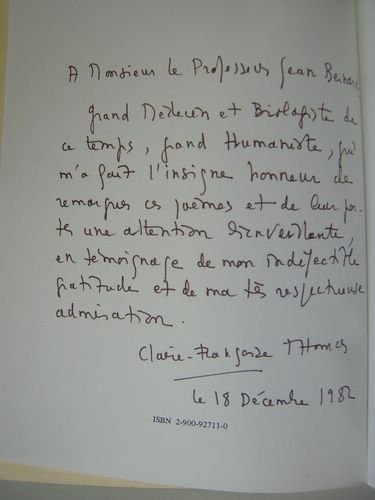 A Monsieur le Professeur Jean Bernard
grand Médecin et Biologiste de
ce temps, grand Humaniste, qui
m'a fait l'insigne honneur de
remarquer ces poèmes et de leur por-
ter une attention bienveillante,
en témoignage de mon indéfectible
gratitude et de ma très respectueuse
admiration.
Claire-Françoise Thomas
le 18 Décembre 1982
ISBN 2-900-92711-0